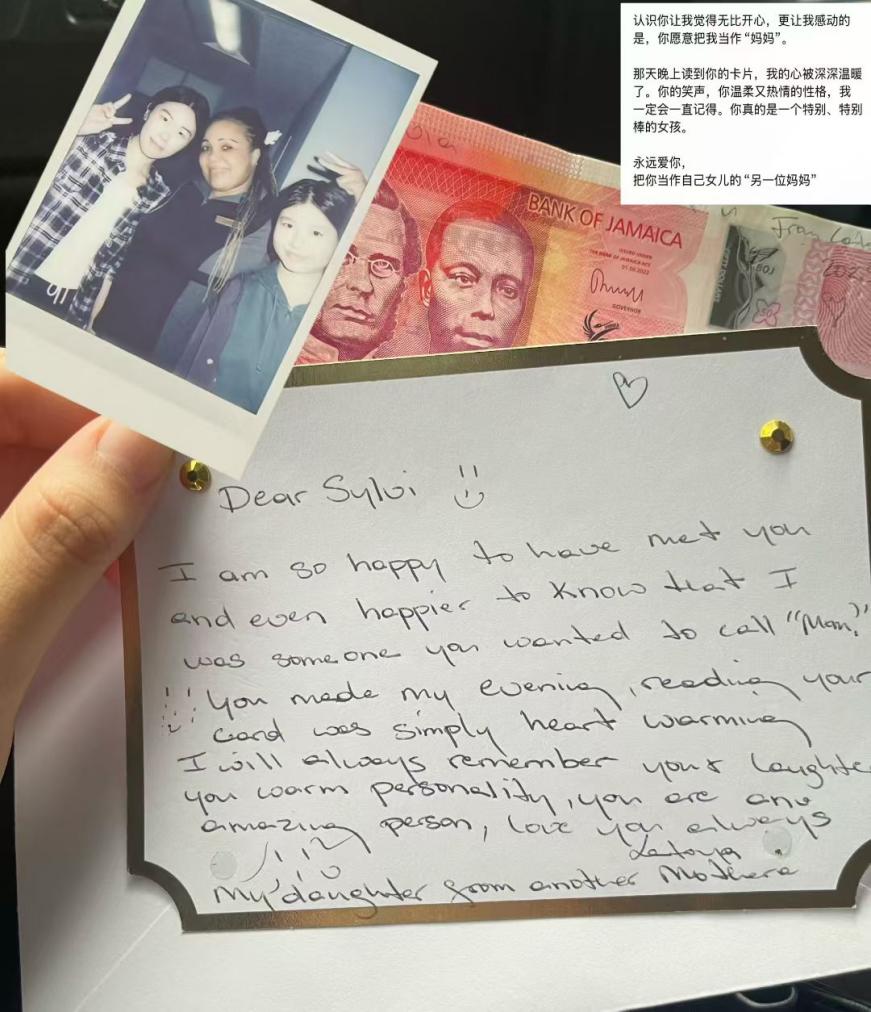 认识你让我觉得无比开心，更让我感动的
是，你愿意把我当作“妈妈”。
那天晚上读到你的卡片，我的心被深深温暖
了。你的笑声，你温柔又热情的性格，我
一定会一直记得。你真的是一个特别、特别
棒的女孩。
永远爱你，
把你当作自己女儿的“另一位妈妈”
BANK OF JAMAICA
ISSUED UNDER
THE BANK OF JAMAICA ACT
01.06.2022
GOVERNOR
Dear Sylvi
I am so happy to have met you
and even happier to know that I
was someone you wanted to call "Mom"
You made my evening, reading your
card was simply heart warming
I will always remember your laughte
you warm personality, you are any
amazing person, love you always
Latoya
My daughter from another Mothere